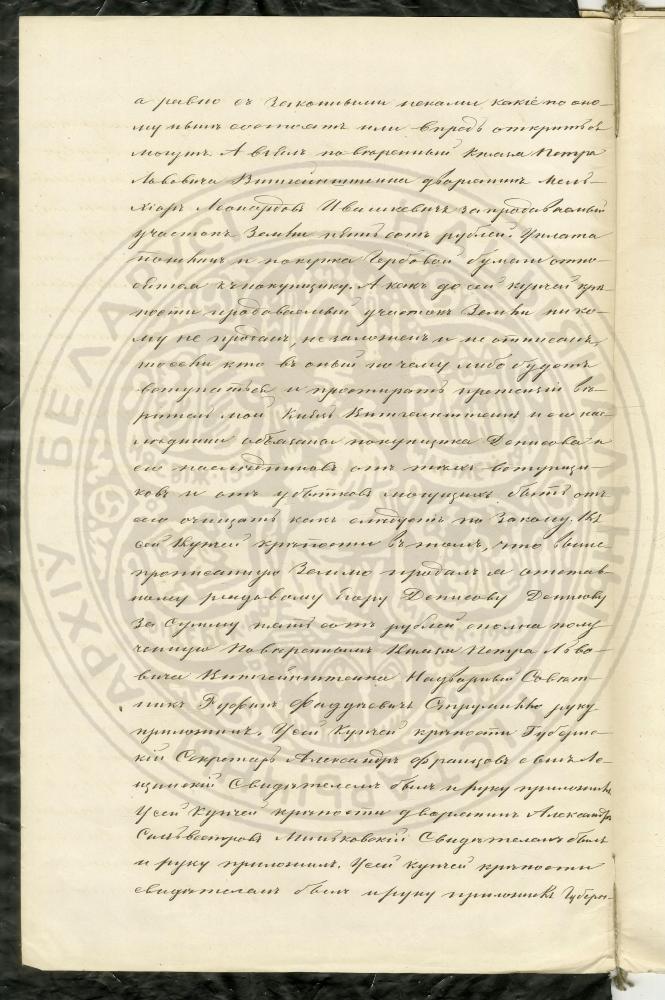 а равно съ законными исками какіе по оно-
му нынѣ состоятъ или впредь открыться
могутъ. А взялъ повѣренный Князя Петра
Львовича Витгенштейна дворянинъ Мель-
хіоръ Леонардовъ Ивашкевичъ за продаваемый
участокъ Земли пятьсотъ рублей. Уплата
пошлинъ и покупка гербовой бумаги отно-
сится къ покупщику. А какъ до сей купчей крѣ-
пости продаваемый участокъ Земли нико-
му не проданъ, не заложенъ и не отписанъ,
то если кто въ оный почему либо будетъ
вступаться и простирать претензіи вѣ-
ритель мой Князь Витгенштейнъ и его нас-
лѣдники обязаны покупщика Денисова и
его наслѣдниковъ отъ тѣхъ вступщи-
ковъ и отъ убытковъ могущихъ быть отъ
сего очищать какъ слѣдуетъ по Закону. Къ
сей Купчей крѣпости въ томъ, что выше
прописанную Землю продалъ я отстав-
ному рядовому Егору Денисову Денисову
за сумму пять сотъ рублей сполна полу
ченную Повѣренный Князя Петра Льво-
вича Витгенштейна Надворный Совѣт-
никъ Руфинъ Фаддѣевичъ Струмилло руку
приложилъ. У сей Купчей крѣпости Губернс-
кій Секретарь Александръ Францовъ сынъ
Свидѣтелемъ былъ и руку приложилъ
У сей Купчей крѣпости дворянинъ Александръ
Сильвестровъ Миньковскій Свидѣтелемъ былъ
и руку приложилъ. У сей купчей крѣпости
свидѣтелемъ былъ и руку приложилъ Губерн-
БЕЛАРУС
АРХІЎ